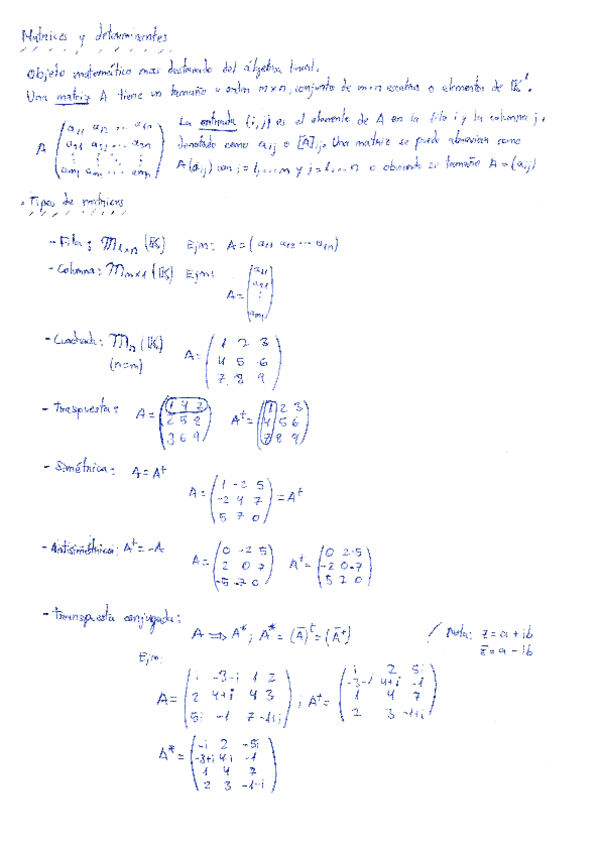 Matrices y determinantes
Objeto matemático mas destacado del álgebra lineal.
Una matriz A tiene un tamaño u orden m×n, conjunto de m·n escalares o elementos de K.
La entrada (i,j) es el elemento de A en la fila i y la columna j,
A ( a11 a12 ... a1n
a21 a22 ... a2n
⋮ ⋮ ⋱ ⋮
am1 am2 ... amn )
denotado como aij o [A]ij. Una matriz se puede abreviar como
A(aij) con i=1,...m y j=1,...n o obviando su tamaño A=(aij)
· Tipos de matrices
- Fila: M1×n (K) Ejm: A=(a11 a12 ... a1n)
- Columna: Mm×1 (K) Ejm: A= ( a11
a21
⋮
am1 )
- Cuadrada: Mn (K)
(n=m)
A= ( 1 2 3
4 5 6
7 8 9 )
- Traspuesta: A= ( 1 4 7
2 5 8
3 6 9 )
At= ( 1 2 3
4 5 6
7 8 9 )
- Simétrica: A=At
A= ( 1 -2 5
-2 4 7
5 7 0 ) =At
- Antisimétrica: At=-A
A= ( 0 -2 5
2 0 7
-5 -7 0 )
At= ( 0 2 -5
-2 0 -7
5 7 0 )
- Transpuesta conjugada:
A ⟹ A*; A* = (Ā)t = (Āt)
/ Nota: z=a+ib
z̄=a-ib
Ejm:
A= ( i -3-i 1 2
2 4+i 4 3
5i -1 7 -1+i )
; At= ( i 2 5i
-3-i 4+i -1
1 4 7
2 3 -1+i )
A*= ( -i 2 -5i
-3+i 4-i -1
1 4 7
2 3 -1-i )